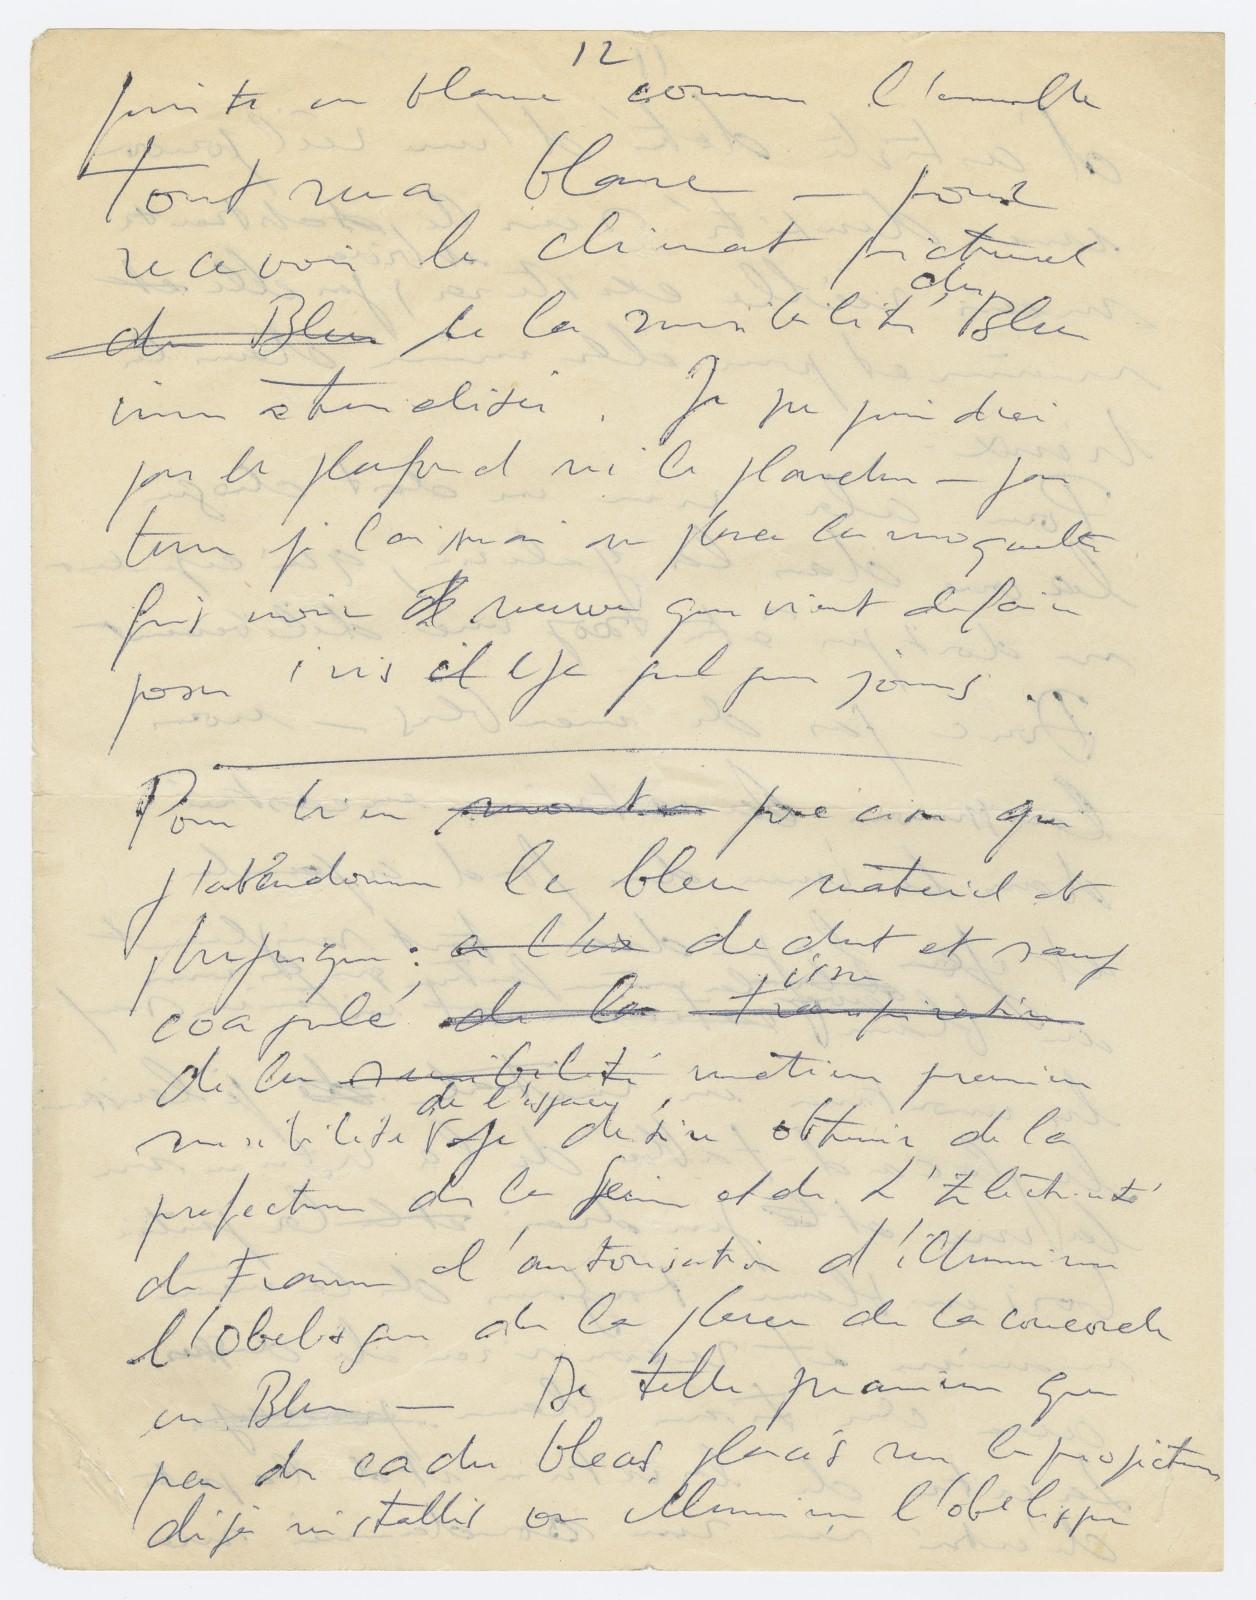 12
peinte en blanc comme l'ensemble
Tout sera blanc — pour
recevoir le climat pictural
du
du Bleu de la sensibilité Bleu
immatérialisé. Je ne peindrai
pas le plafond ni le plancher — par
terre je laisserai en place la moquette
gris noir neuve que vient de faire
poser iris il y a quelques jours.
Pour bien montrer préciser que
j'abandonne le bleu matériel et
physique; déchet et sang
coagulé issu
de la transpiration
de la sensibilité matière première
de l'espace,
sensibilité je désire obtenir de la
préfecture de la Seine et de L'Electricité
de France l'autorisation d'illuminer
l'Obelisque de la place de la concorde
en Bleu — De telle manière que
par de cadre bleus placés sur les projecteurs
déjà installés on illumine l'obelisque